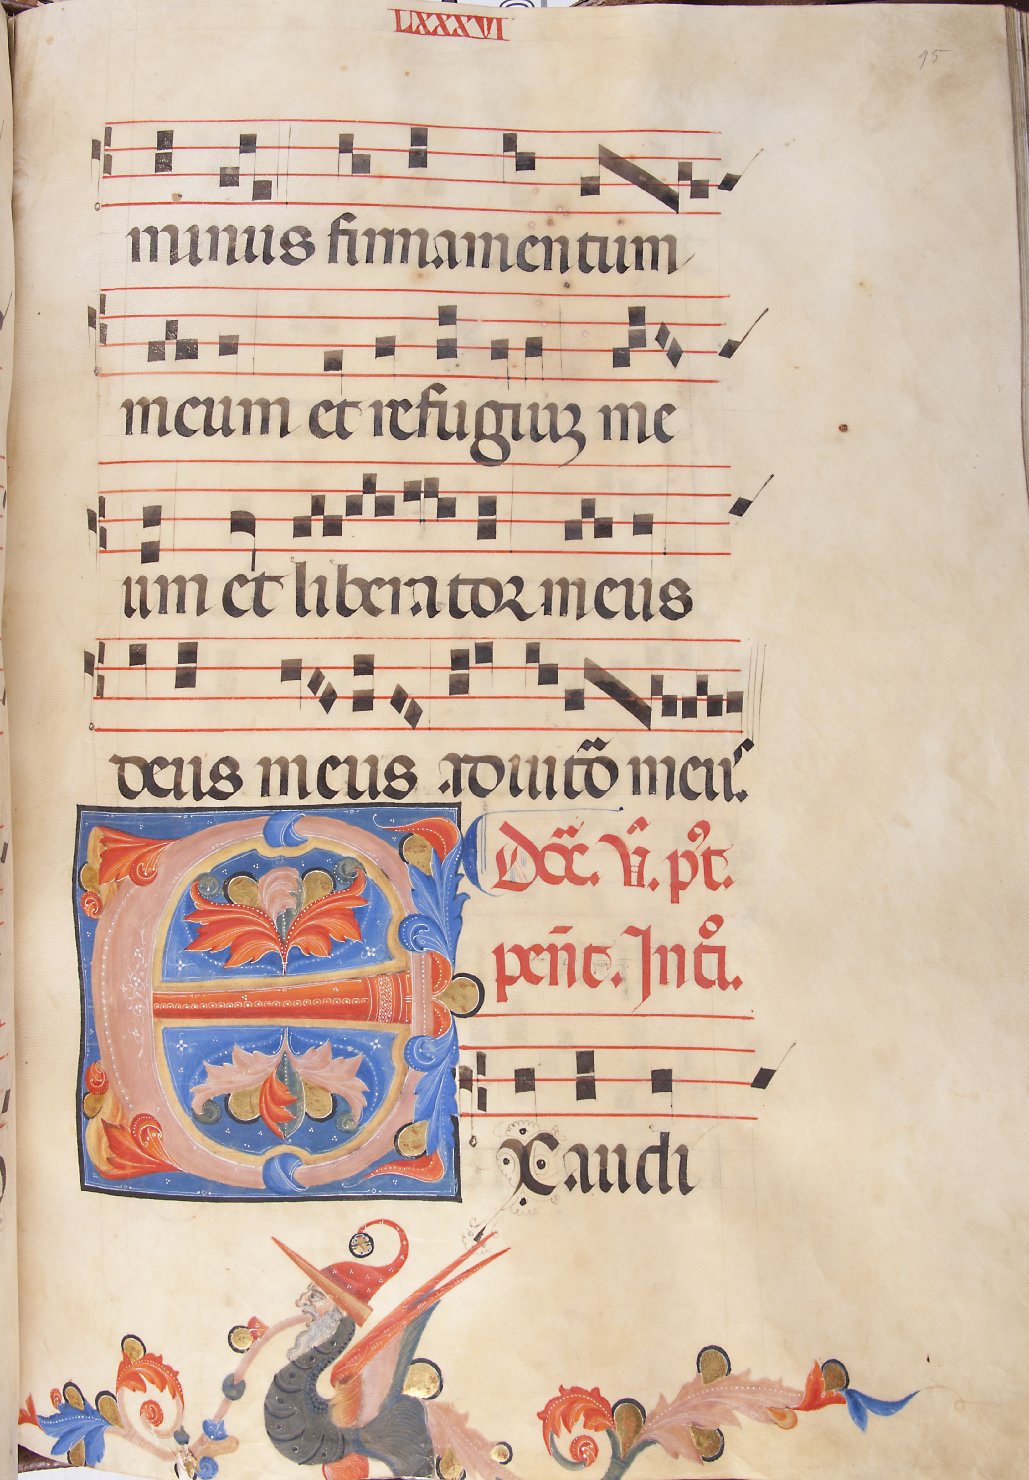 LXXXVI
95
minus firmamentum
meum et refugiuꝫ me
um et liberator meus
deus meus adiutõ meu.
Doc̃. vi. p't.
peñt. Int'.
Exaudi